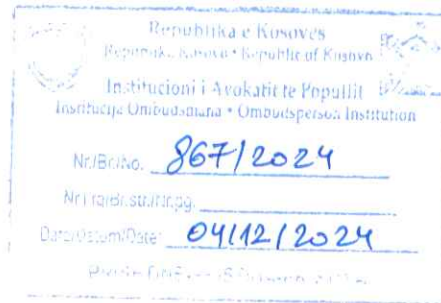 Republika e Kosovës
Republika Kosova • Republic of Kosovo
Institucioni i Avokatit të Popullit
Institucija Ombudsmana • Ombudsperson Institution
Nr/Br/No. 867/2024
Data/Datum/Date: 04/12/2024